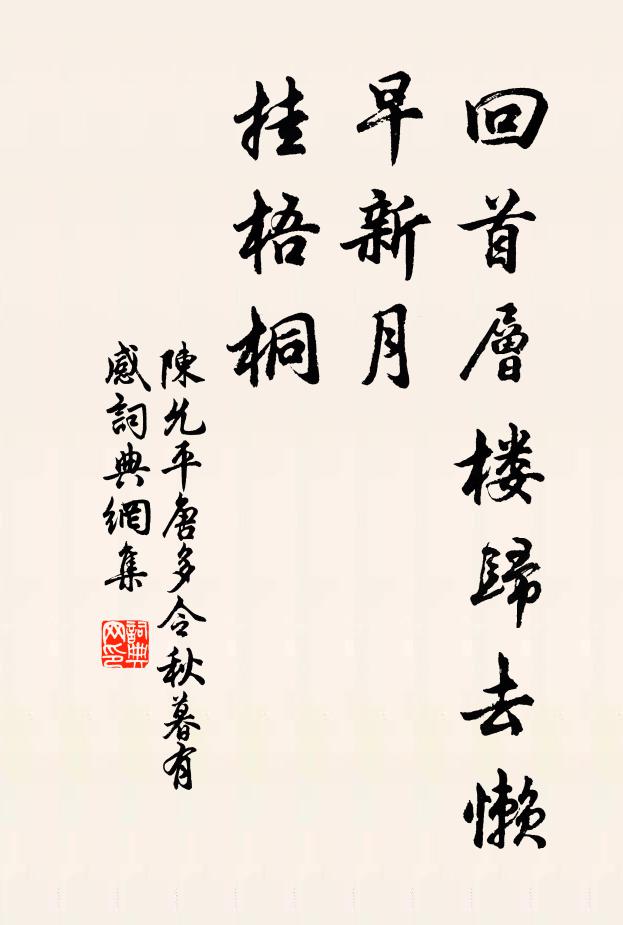 回首層楼歸去懒
早新月
挂梧桐
陳允平唐多令秋暮有
感詞典網集
詞典
网印